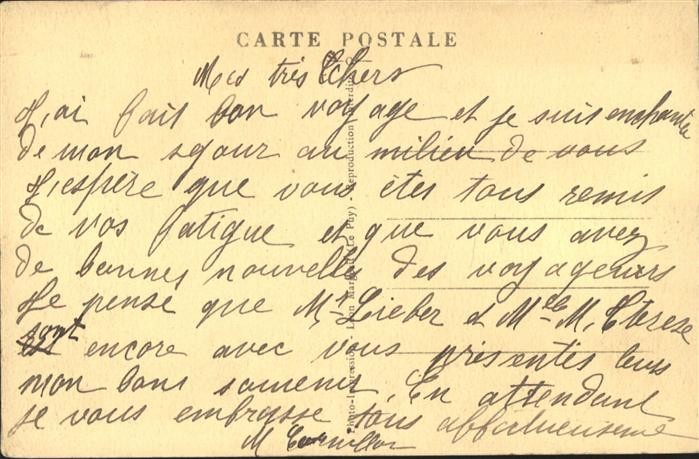 CARTE POSTALE
Mes très Chers
J,ai fait bon voyage et je suis enchantée
de mon sejour au milieu de vous
J,espère que vous êtes tous remis
de vos fatigue et que vous avez
de bonnes nouvelles des voyageurs
Je pense que Mr Lieber et Mlle M. Therese
sont encore avec vous présentes leurs
mon bons souvenir, En attendant
je vous embrasse tous affectueusement
M
Photo-Impression Léon Margerit (Le Puy) - Reproduction interdite